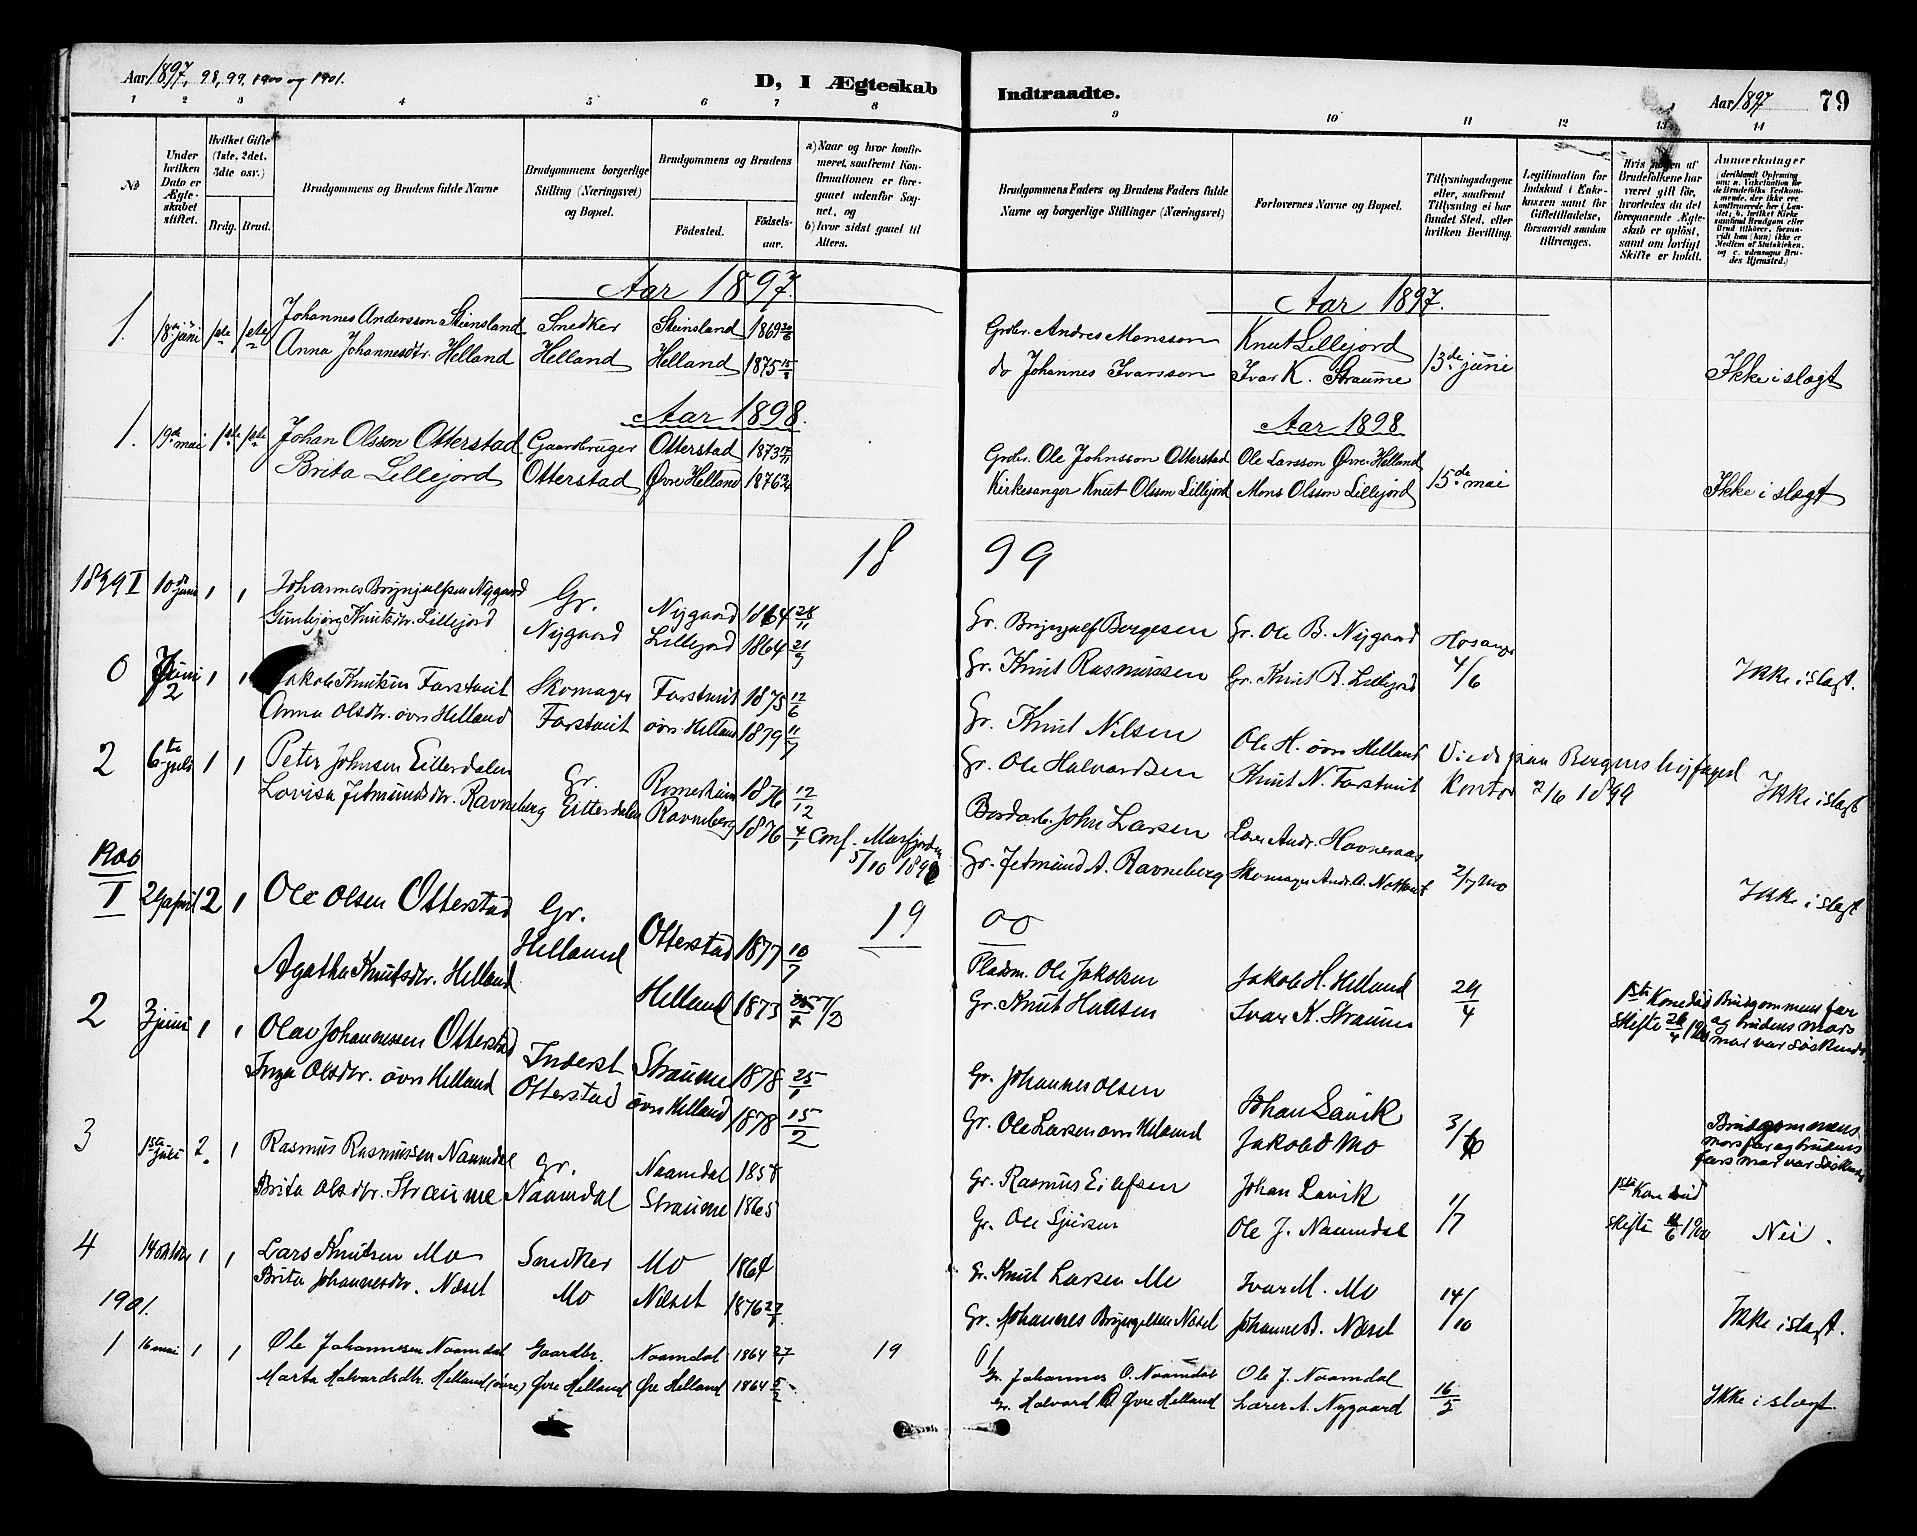 Aar 1897, 98, 99, 1900 og 1901.
D, I Ægteskab Indtraadte.
Aar 1897 79
1 2 3 4 5 6 7 8 9 10 11 12 13 14
No
Under hvilken Dato er Ægteskabet stiftet.
Hvilket Gifte (1ste, 2det, 3die osv.)
Brdg. Brud.
Brudgommens og Brudens fulde Navne
Brudgommens borgerlige Stilling (Næringsvei) og Bopæl.
Brudgommens og Brudens
Födested. Födsels-aar.
a) Naar og hvor konfirmeret, saafremt Konfirmationen er foregaaet udenfor Sognet, og
b) hvor sidst gaaet til Alters.
Brudgommens Faders og Brudens Faders fulde Navne og borgerlige Stillinger (Næringsvei)
Forlovernes Navne og Bopæl.
Tillysningsdagene eller, saafremt Tillysning ei har fundet Sted, efter hvilken Bevilling.
Legitimation for Indskud i Enkekassen samt for Giftetilladelse, forsaavidt saadan tiltrænges.
Hvis nogen af Brudefolkene har været gift för, hvorledes da det foregaaende Ægteskab er oplöst, samt om lovligt Skifte er holdt.
Anmærkninger
Aar 1897. Aar 1897.
1. 18de juni 1ste 1ste Johannes Andersson Steinsland Snedker Steinsland 1869 Grdbr. Andres Monsson Knut Lillejord
Anna Johannesdtr. Helland Helland Helland 1875 15/8 do Johannes Ivarsson Ivar K. Straume 13de juni Ikke i slægt
Aar 1898. Aar 1898
1. 19de mai 1ste 1ste Johan Olsson Otterstad Gaardbruger Otterstad 1873 Grdbr. Ole Johnsson Otterstad Ole Larsson Øvre Helland
Brita Lillejord Otterstad Øvre Helland 1876 Kirkesanger Knut Olsson Lillejord Mons Olsson Lillejord 15de mai Ikke i slægt
18 99
1899 I 10de juni 1 1 Johannes Brynjulfsen Nygaard Gr. Nygaard 1864 28/11 Gr. Brynjulf Bergesen Gr. Ole B. Nygaard Hosanger
Gunbjørg Knutsdtr. Lillejord Nygaard Lillejord 1864 21/9 Gr. Knut Rasmussen Gr. Knut R. Lillejord 4/6 Ikke i slægt.
0 Juni 2 1 1 Jakob Knutsen Farstveit Skomager Farstveit 1875 12/6 Gr. Knut Nilsen Ole H. øvre Helland Viede paa Bergens byfoged
Anna Olsdtr. øvre Helland Farstveit øvre Helland 1879 11/7 Gr. Ole Halvardsen Knut N. Farstveit Kontor 2/6 1899 Ikke i slægt
2 6te juli 1 1 Peter Johnsen Eitterdalen Gr. Romerheim 1876 12/12 Bordarb. John Larsen Lærer Andr. Hovneraas
Lovisa Jetmundsdtr. Ravneberg Eitterdalen Ravneberg 1876 4/1 Conf. Masfjorden 5/10 1890 Gr. Jetmund A. Ravneberg Skomager Andr. A. 2/7 Mo Ikke i slægt
1900 19 00
I 29 april 2 1 Ole Olsen Otterstad Gr. Helland Otterstad 1877 10/7 Pladsm. Ole Jakobsen Jakob H. Helland 29/4 1ste Kone død Brudgommens far
Agatha Knutsdtr. Helland Helland 1873 7/2 Gr. Knut Ivar K. Straume Skifte 26/4 1900 og brudens mors mor var Søskende
2 3 juni 1 1 Olav Johannessen Otterstad Inderst Straume 1878 25/1 Gr. Johannes Olsen Johan Lavik
Inga Olsdtr. øvre Helland Otterstad øvre Helland 1878 15/2 Gr. Ole Larsen øvre Helland Jakob O Mo 3/6 Brudgommens mors far og brudens fars mor var Søskende
3 1ste juli 2. 1 Rasmus Rasmussen Naamdal Gr. Naamdal 1858 Gr. Rasmus Eilefsen Johan Lavik 1ste Kone død
Brita Olsdtr. Straume Naamdal Straume 1865 Gr. Ole Sjursen Ole J. Naamdal 1/7 Skifte 1900 Nei.
4 14 oktbr 1 1 Lars Knutsen Mo Snedker Mo 1864 Gr. Knut Larsen Mo Ivar M. Mo 14/10
Brita Johannesdtr. Næset Mo Næset 1876 27/7 Gr. Johannes Brynjelsen Næset Johannes B. Næset Ikke i slægt.
1901. 19 01
1 16 mai 1 1 Ole Johannesen Naamdal Gaardbr. Naamdal 1864 27/1 Gr. Johannes O. Naamdal Ole J. Naamdal
Marta Halvardsdtr. Helland (øvre) Øvre Helland Øvre Helland 1864 5/2 Gr. Halvard O Øvre Helland Lærer A. Nygaard 16/5 Ikke i slægt.